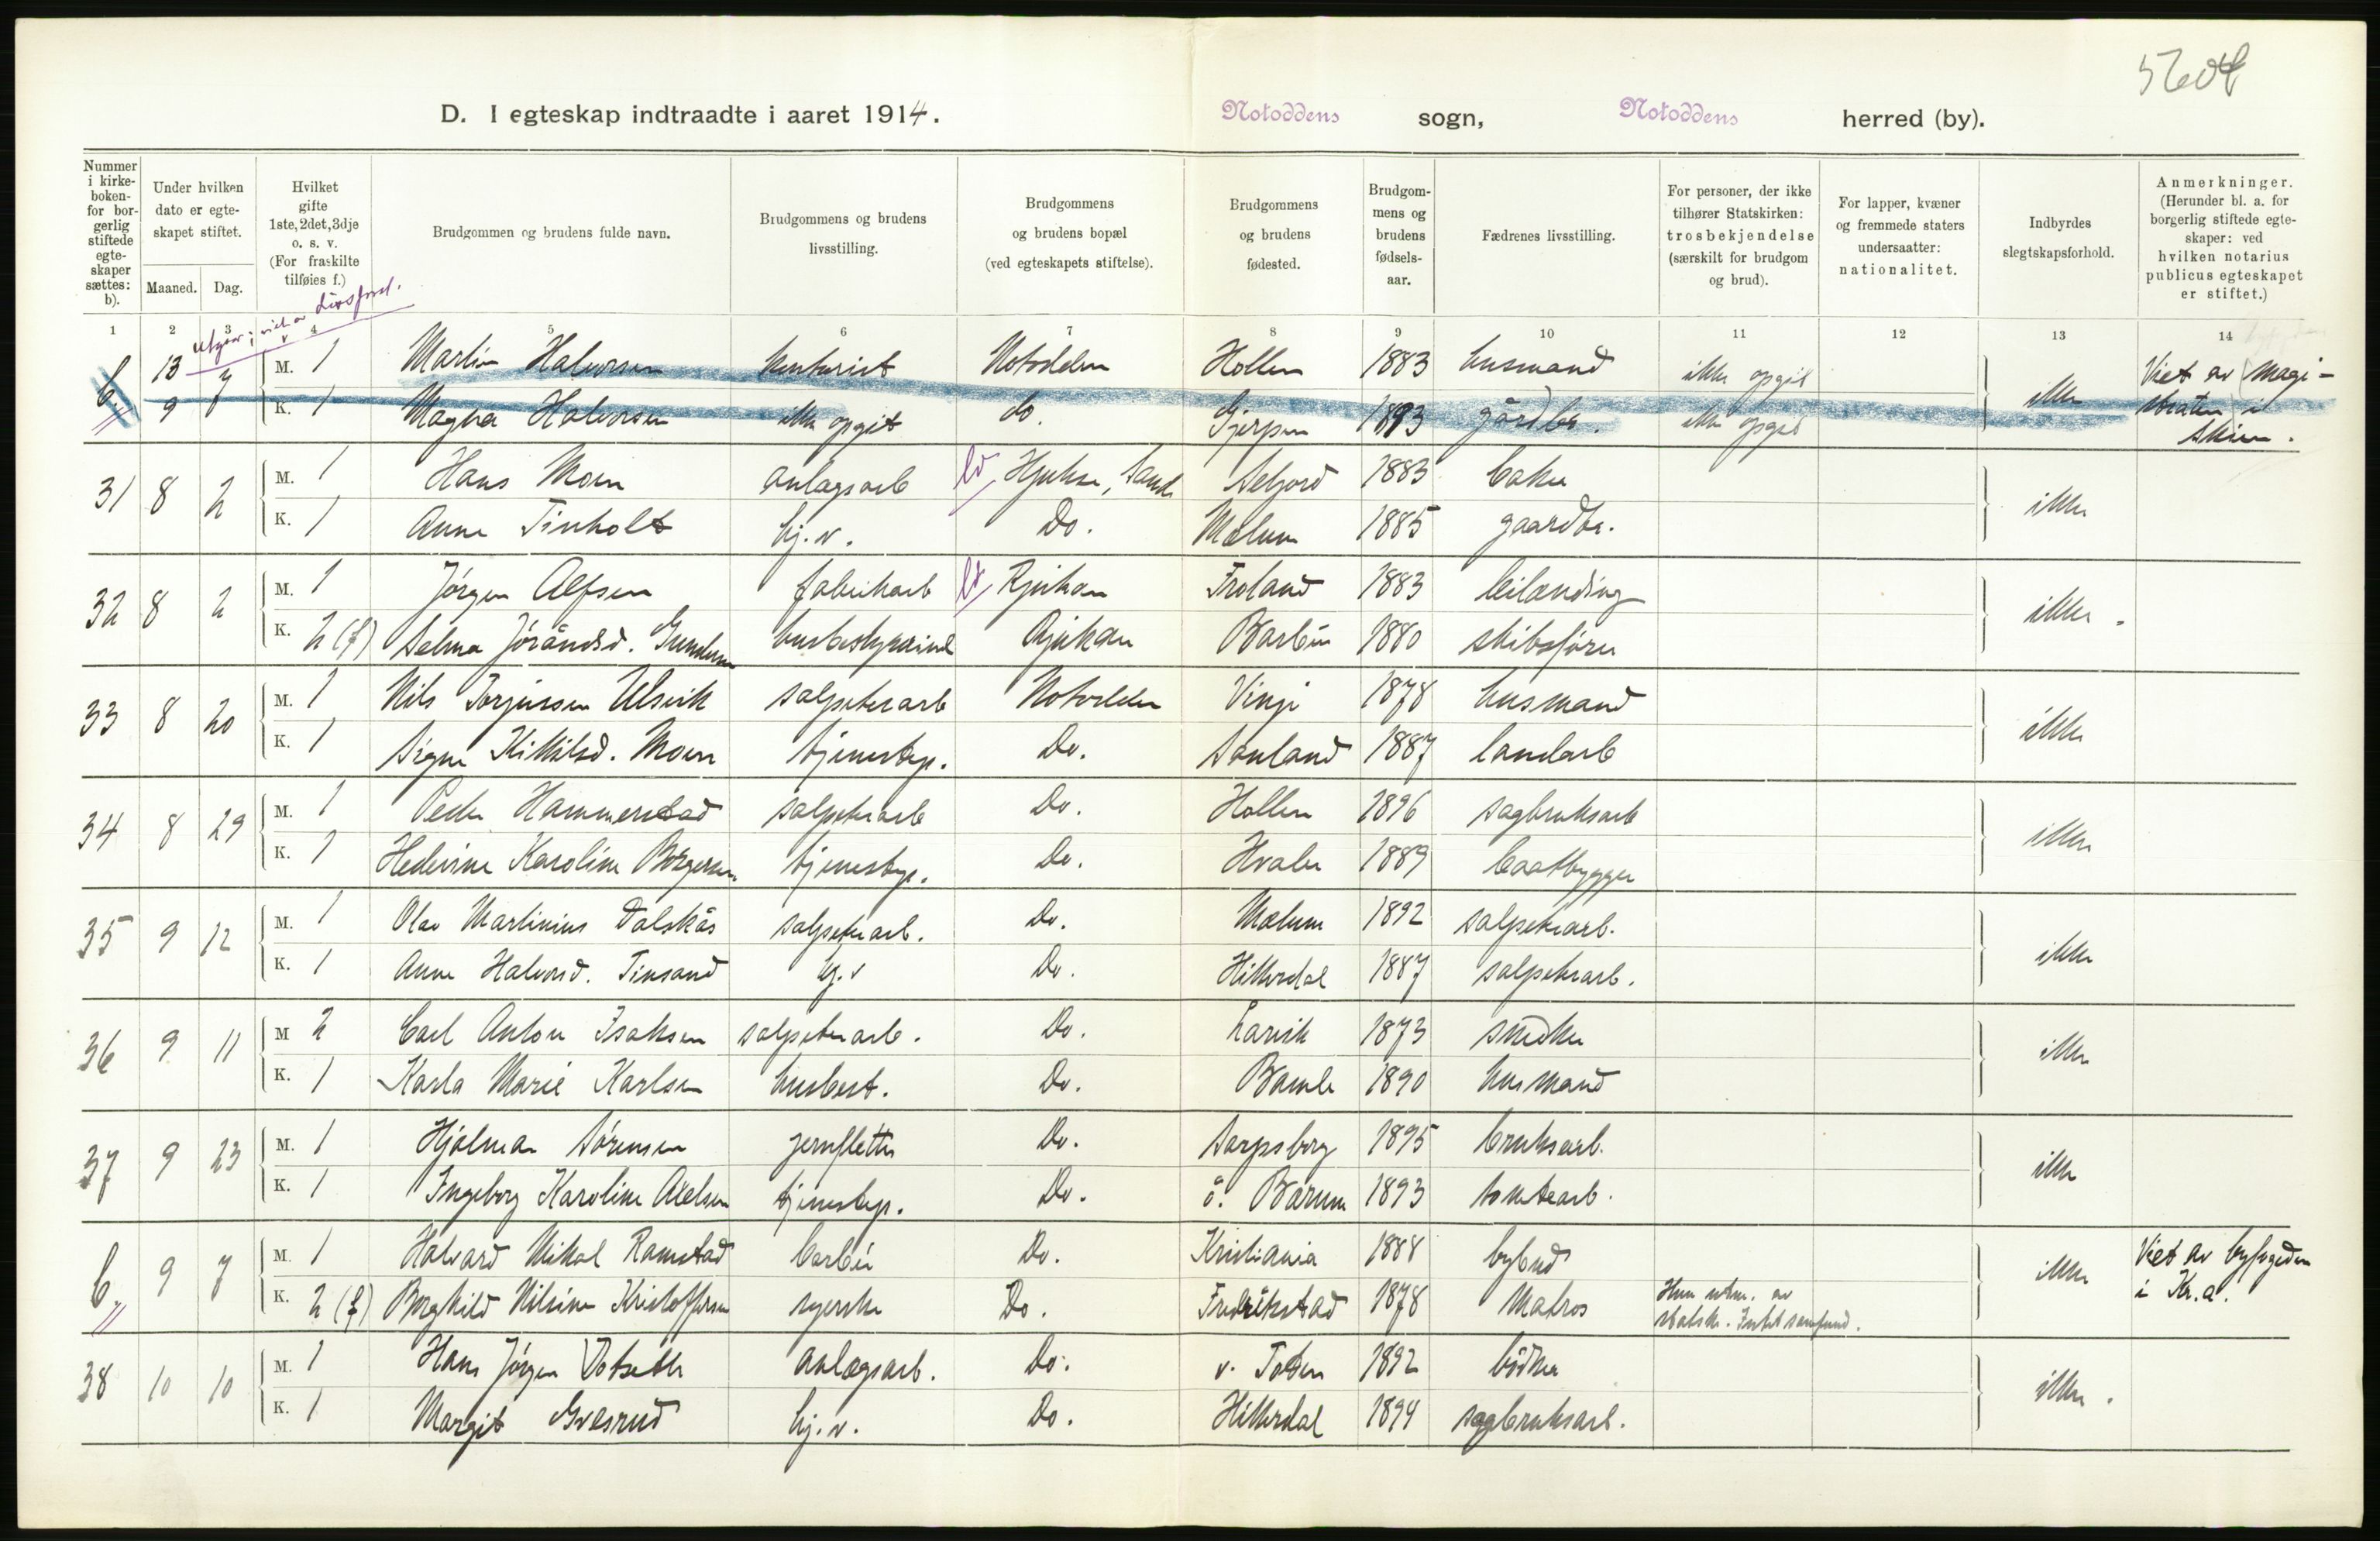 5604
D. I egteskap indtraadte i aaret 1914. Notoddens sogn, Notoddens herred (by).
Nummer i kirke-boken- for bor-gerlig stiftede egte-skaper sættes: b).
Under hvilken dato er egte-skapet stiftet.
Maaned. Dag.
Hvilket gifte 1ste, 2det, 3dje o. s. v. (For fraskilte tilføies f.)
Brudgommen og brudens fulde navn.
Brudgommens og brudens livsstilling.
Brudgommens og brudens bopæl (ved egteskapets stiftelse).
Brudgommens og brudens fødested.
Brudgom-mens og brudens fødsels-aar.
Fædrenes livsstilling.
For personer, der ikke tilhører Statskirken: trosbekjendelse (særskilt for brudgom og brud).
For lapper, kvæner og fremmede staters undersaatter: nationalitet.
Indbyrdes slegtskapsforhold.
Anmerkninger. (Herunder bl. a. for borgerlig stiftede egte-skaper: ved hvilken notarius publicus egteskapet er stiftet.)
1 2 3 4 5 6 7 8 9 10 11 12 13 14
b. 13 7 M. 1 Martin Halvorsen kontorist Notodden Hollen 1883 husmand ikke opgit ikke Viet av magi-
9 K. 1 Magna Halvorsen ikke opgit do. Gjerpen 1893 gårdbr. ikke opgit straten i
Skien.
31 8 2 M. 1 Hans Moen anlægsarb Hjukse, Saude Seljord 1883 baker ikke
K. 1 Anne Tinholt hj.v. Do. Melum 1885 gaardbr.
32 8 2 M. 1 Jørgen Alfsen fabrikarb Rjukan Froland 1883 leilænding ikke.
K. 2 (f) Selma Jørandsd. Gundersen husbestyrerinde Rjukan Barbu 1880 skibsfører
33 8 20 M. 1 Nils Torjussen Ulsvik salpeterarb Notodden Vinje 1878 husmand ikke
K. 1 Signe Kittilsd. Moen tjenestep. Do. Sauland 1887 landarb
34 8 29 M. 1 Peder Hammerstad salpeterarb Do. Hollen 1896 sagbruksarb ikke
K. 1 Hedevine Karoline Børgersen tjenestep. Do. Hvaler 1889 baatbygger
35 9 12 M. 1 Olav Martinius Dalskås salpeterarb. Do. Melum 1892 salpeterarb. ikke
K. 1 Anne Halvorsd. Tinsand hj.v Do. Hitterdal 1887 salpeterarb.
36 9 11 M 2 Carl Anton Isaksen salpeterarb. Do. Larvik 1873 snedker ikke
K. 1 Karla Marie Karlsen husbest. Do. Bamle 1890 husmand
37 9 23 M. 1 Hjalmar Sørensen jernfletter Do. Sarpsborg 1895 bruksarb. ikke
K. 1 Ingeborg Karoline Axelsen tjenestep. Do. ø. Bærum 1893 tomtearb.
b. 9 7 M. 1 Halvard Mikal Ramstad barbér Do. Kristiania 1888 bybud ikke Viet av byfogden
K. 2 (f) Borghild Nilsine Kristoffersen syerske Do. Fredrikstad 1878 Matros Hun utm. av i Kr.a.
statsk. Intet samfund.
38 10 10 M. 1 Hans Jørgen Votseth anlægsarb. Do. v. Toten 1892 bødker ikke.
K. 1 Margit Gvæsrud hj.v. Do. Hitterdal 1894 sagbruksarb.